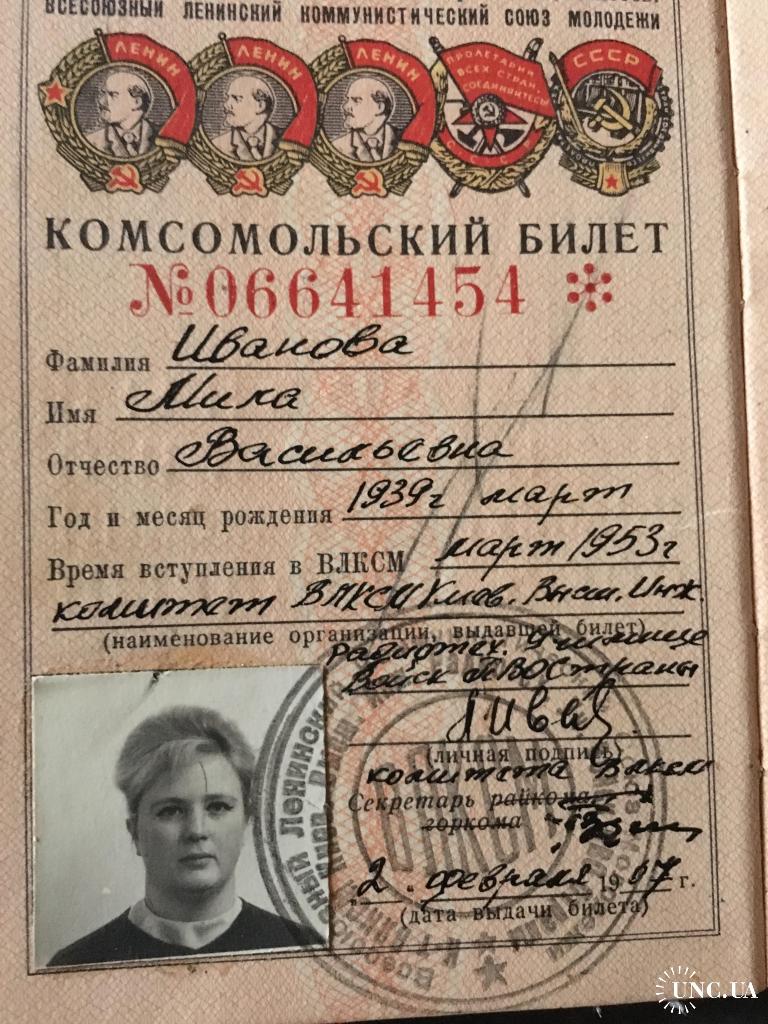 ВСЕСОЮЗНЫЙ ЛЕНИНСКИЙ КОММУНИСТИЧЕСКИЙ СОЮЗ МОЛОДЕЖИ
ЛЕНИН ЛЕНИН ЛЕНИН ПРОЛЕТАРИИ ВСЕХ СТРАН, СОЕДИНЯЙТЕСЬ! СССР СССР
КОМСОМОЛЬСКИЙ БИЛЕТ
№ 06641454
Фамилия Иванова
Имя Мила
Отчество Васильевна
Год и месяц рождения 1939г март
Время вступления в ВЛКСМ март 1953г
комитет ВЛКСМ Киев. Высш. Инж.
(наименование организации, выдавшей билет)
Радиотех. Училище
Войск ПВО Страны
(личная подпись)
комитета ВЛКСМ
Секретарь райкома
горкома
"2" февраля 1967 г.
(дата выдачи билета)
ВЛКСМ
UNC.UA